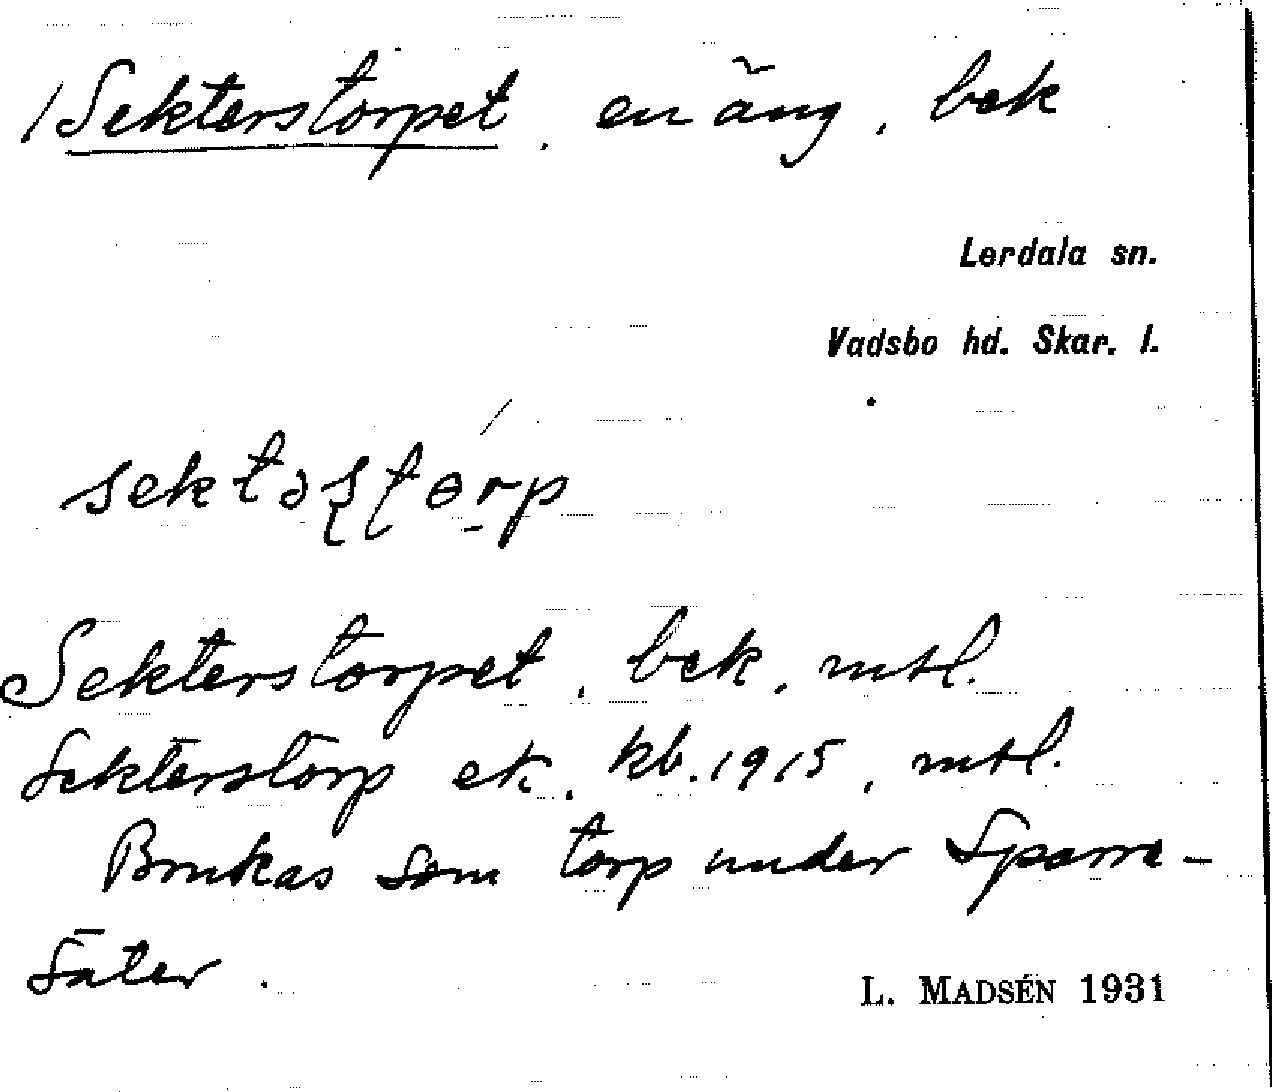 1 Sekterstorpet, en äng, bek
Lerdala sn.
Vadsbo hd. Skar. l.
Sekterstorpet, bek, mtl.
Sekterstorp ek, kb. 1915, mtl.
Brukas som torp under Sparre-
säter.
L. MADSÉN 1931